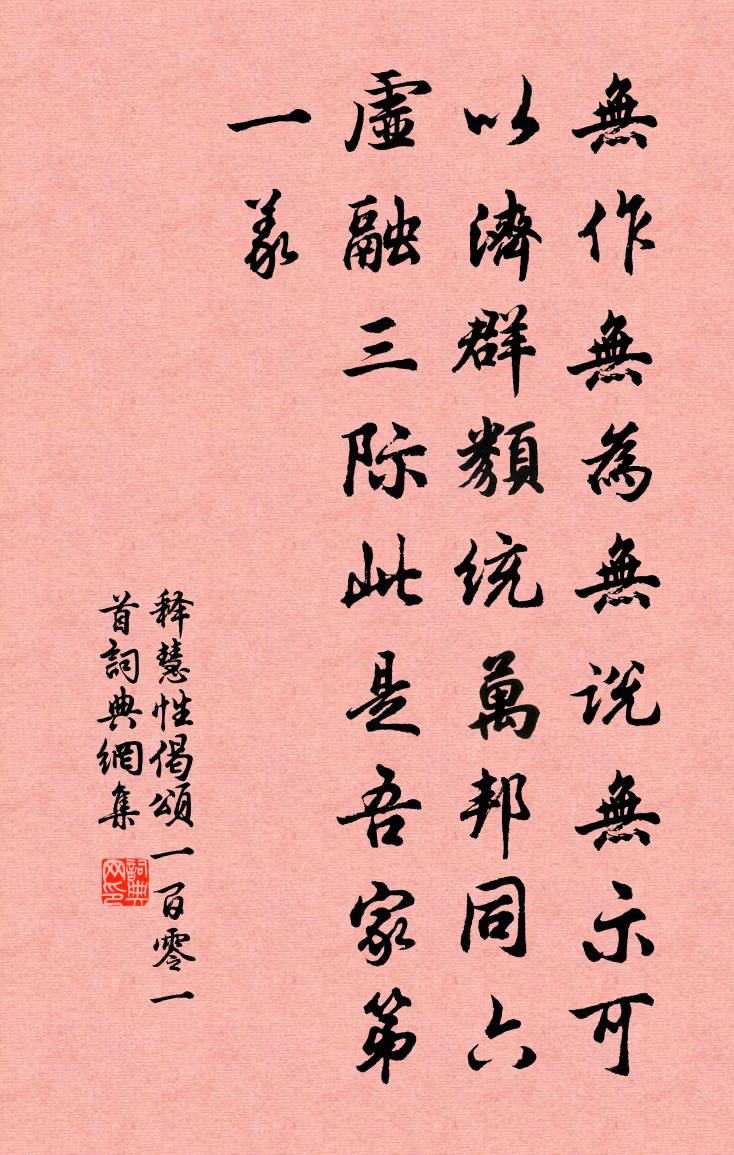 無作無為無説無示可
以濟群類統萬邦同六
虛融三际此是吾家第
一義
释慧性偈頌一百零一
首詞典網集
詞典網印